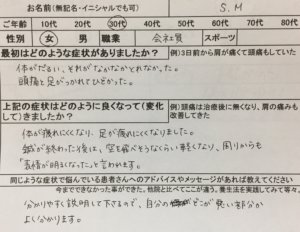 お名前(無記名・イニシャルでも可) S.M
ご年齢 10代 20代 30代 40代 50代 60代 70代 80代
性別 女 男 職業 会社員 スポーツ
最初はどのような症状がありましたか? 例)3日前から肩が痛くて頭痛もしていた
体がだるい、それがなかなかとれなかった。
頭痛と足がつかれてひどかった。
上記の症状はどのように良くなって(変化して)きましたか? 例)頭痛は治療後に無くなり、肩の痛みも改善してきた
体が疲れにくくなり、足が疲れにくくなりました。
鍼が終わった後は、空を飛べそうなくらい軽くなり、周りからも
"表情が明るくなった"と言われます。
同じような症状で悩んでいる患者さんへのアドバイスやメッセージがあれば教えてください
今までできなかった事ができた。他院と比べてここが違う。養生法を実践してみて等々、
分かりやすく説明して下るので、自分のどこが悪い部分か
よく分かります。